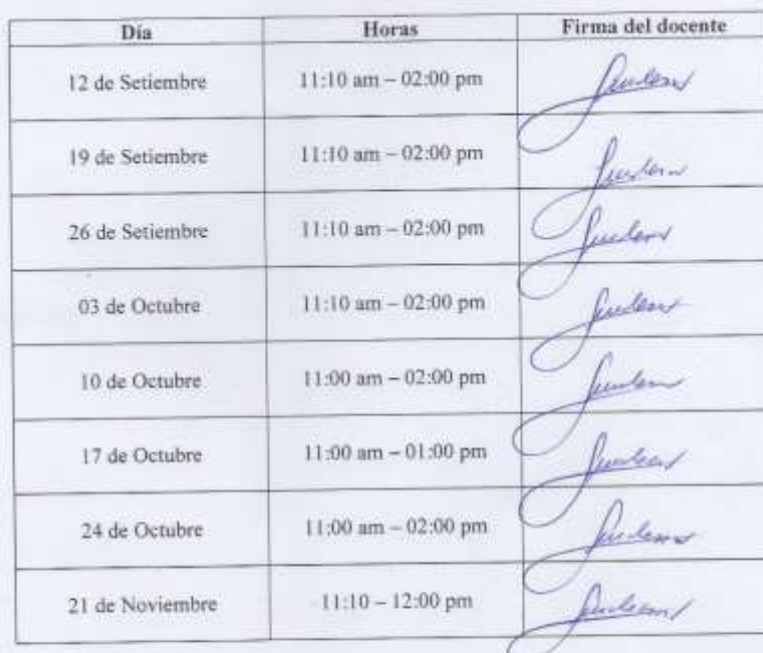 Día Horas Firma del docente
12 de Setiembre 11:10 am – 02:00 pm
19 de Setiembre 11:10 am – 02:00 pm
26 de Setiembre 11:10 am – 02:00 pm
03 de Octubre 11:10 am – 02:00 pm
10 de Octubre 11:00 am – 02:00 pm
17 de Octubre 11:00 am – 01:00 pm
24 de Octubre 11:00 am – 02:00 pm
21 de Noviembre 11:10 – 12:00 pm